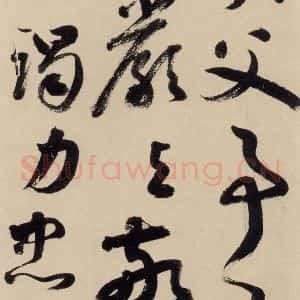 父事
嚴與敬
竭力忠
Shufawang.CN